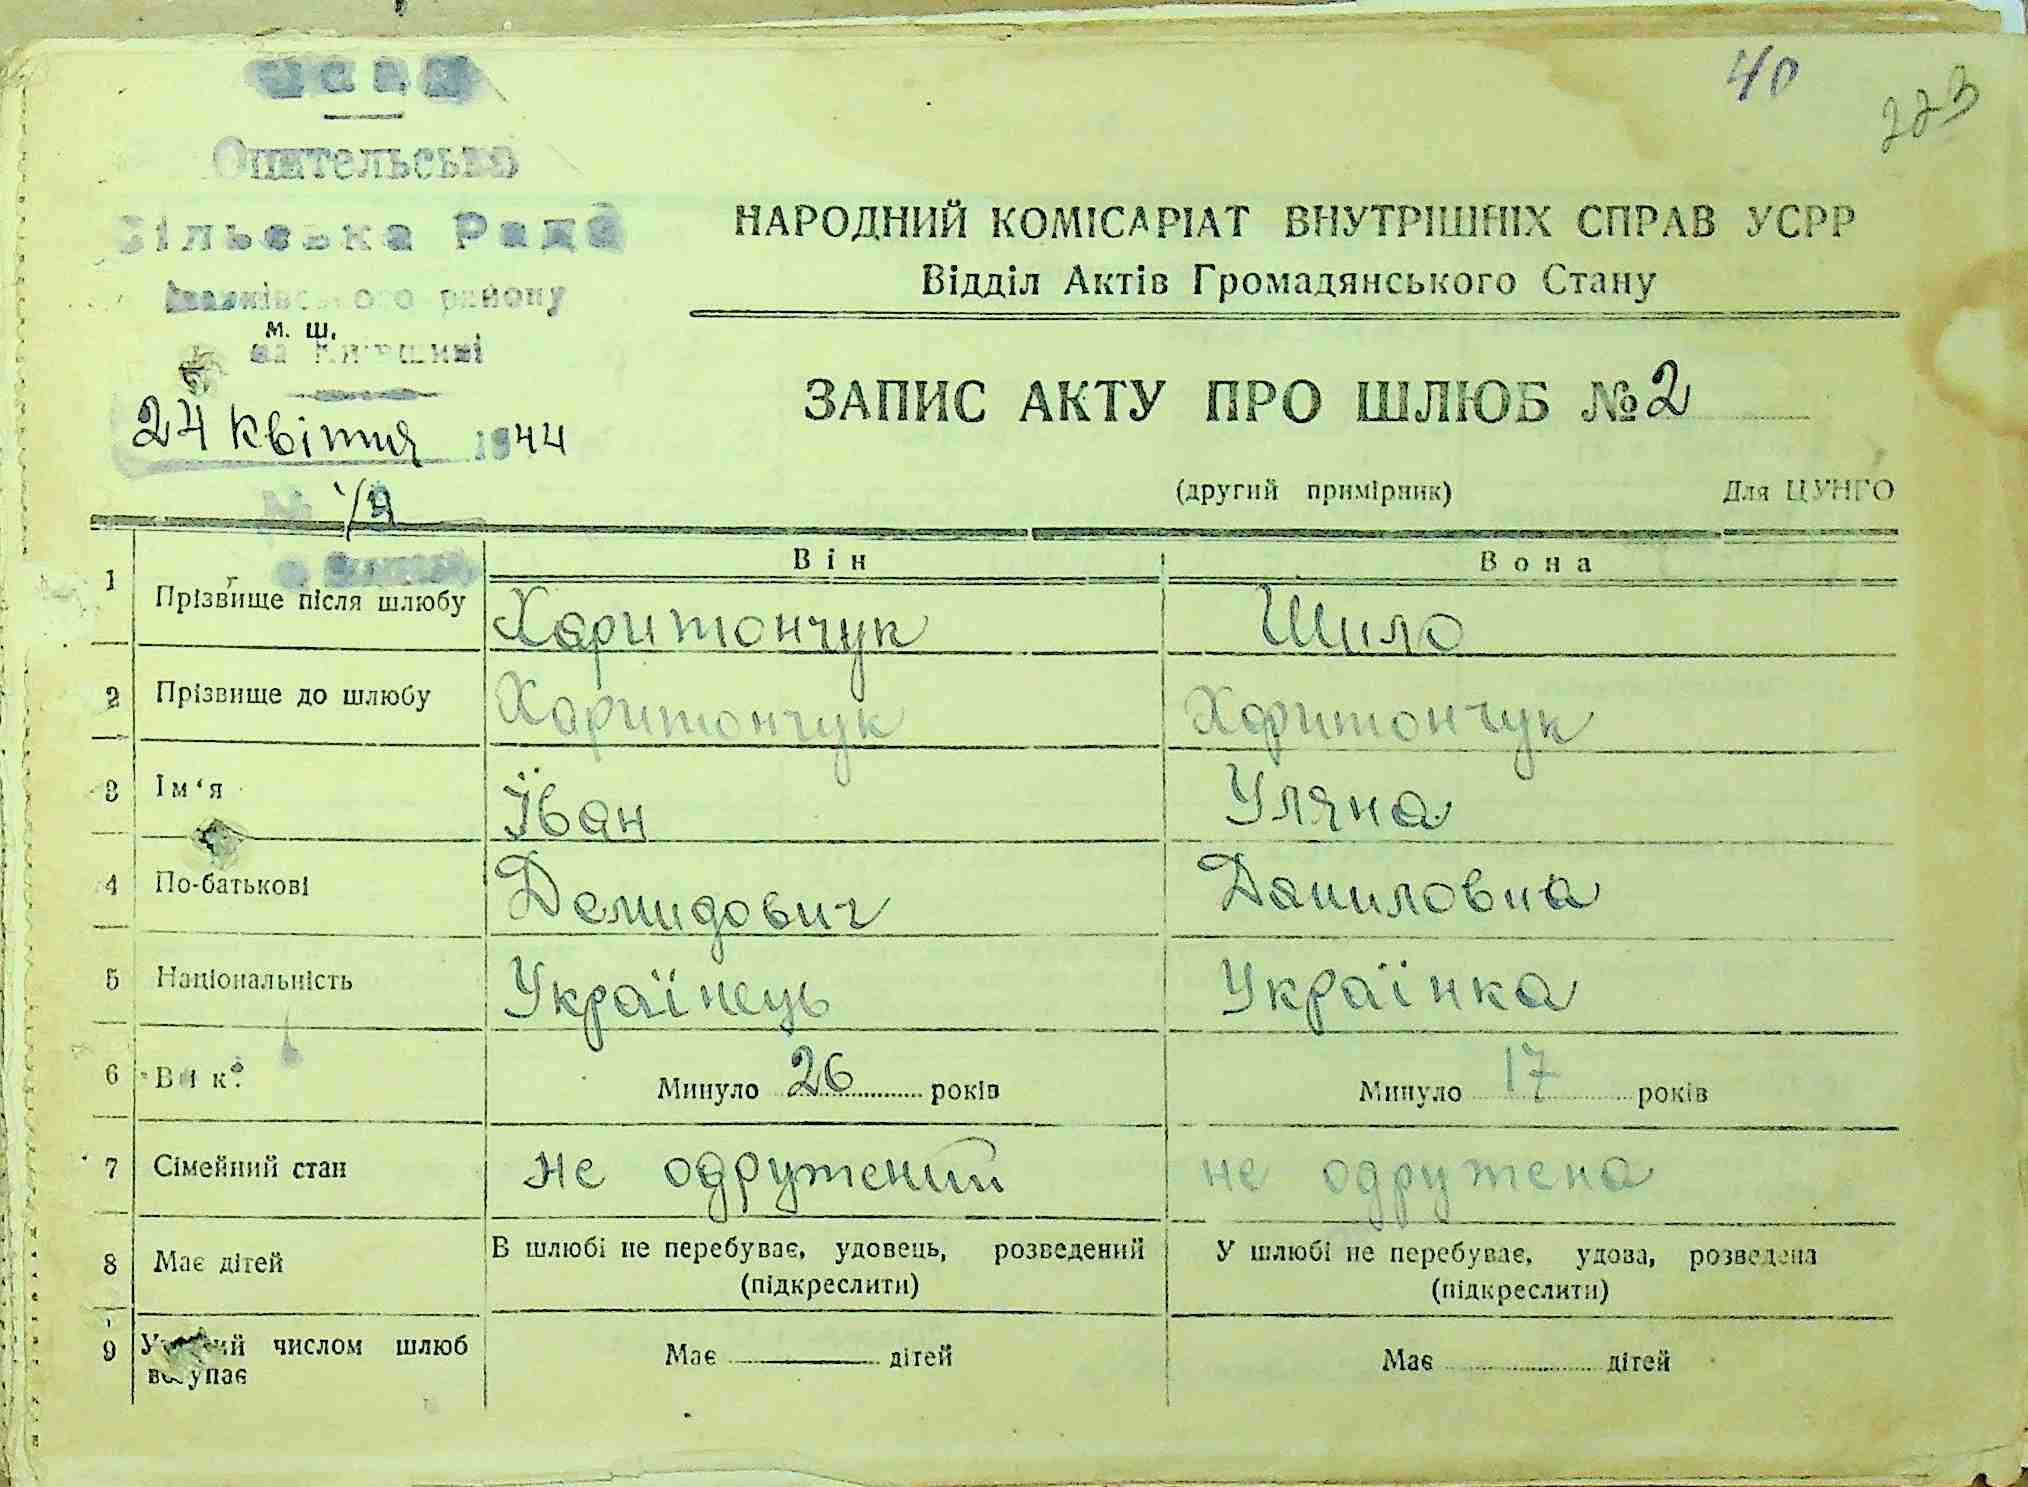 УСРР
40
223
Опительська
Сільська Рада
Іванківського району
на Київщині
м. ш.
24 квітня 1944
№ 1/2
НАРОДНИЙ КОМІСАРІАТ ВНУТРІШНІХ СПРАВ УСРР
Відділ Актів Громадянського Стану
ЗАПИС АКТУ ПРО ШЛЮБ № 2
(другий примірник) Для ЦУНГО
Він Вона
1 Прізвище після шлюбу Харитончук Шило
2 Прізвище до шлюбу Харитончук Харитончук
3 Ім‘я Їван Уляна
4 По-батькові Демидович Даниловна
5 Національність Українець Українка
6 Вік: Минуло 26 років Минуло 17 років
7 Сімейний стан не одружений не одружена
8 Має дітей В шлюбі не перебуває, удовець, розведений У шлюбі не перебуває, удова, розведена
(підкреслити) (підкреслити)
9 числом шлюб Має дітей Має дітей
вступає